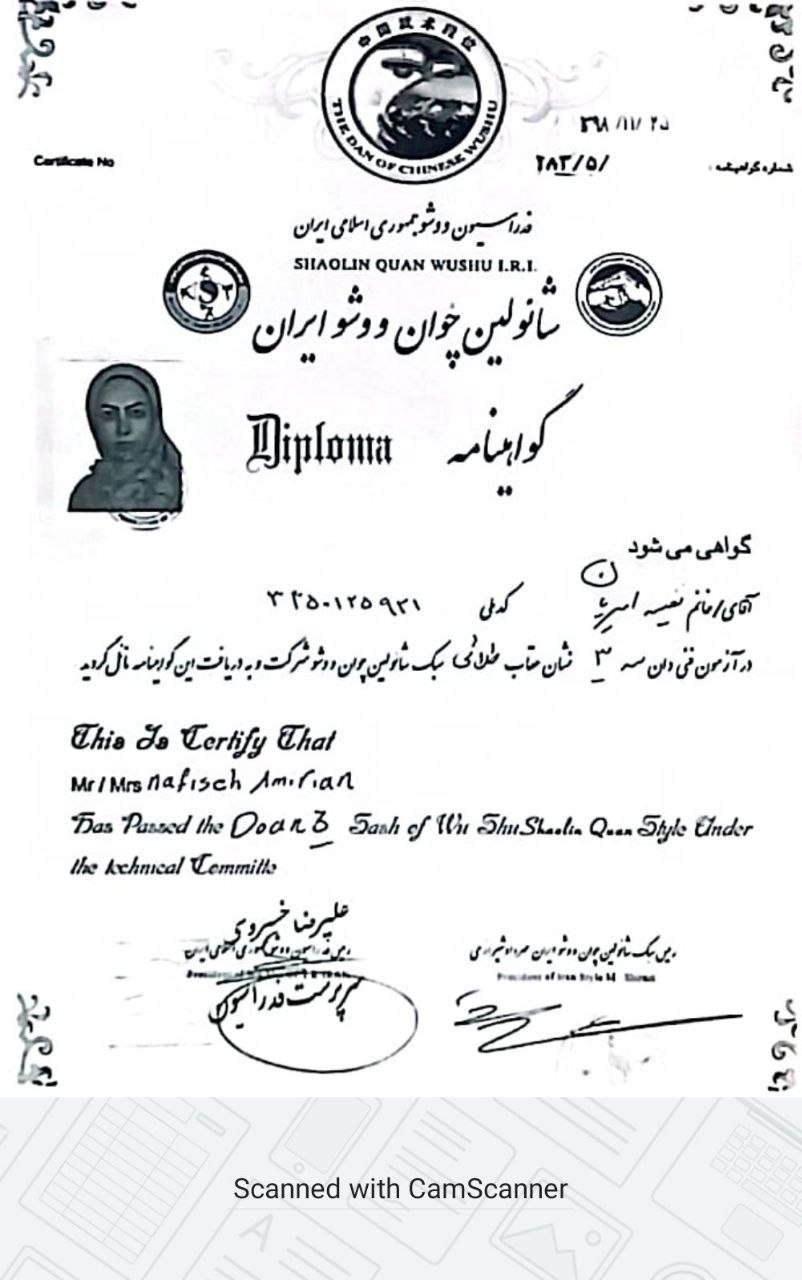 中国武术段位
THE DAN OF CHINESE WUSHU
۳۹۸/۱۱/۲۵
Certificate No
۲۸۳/۵/
شماره گواهینامه :
فدراسیون ووشو جمهوری اسلامی ایران
SHAOLIN QUAN WUSHU I.R.I.
شائولین چوان ووشو ایران
Diploma گواهینامه
گواهی می شود
آقای/خانم نفیسه امیریان کدملی
در آزمون فنی دان سه ۳ نشان عقاب طلائی سبک شائولین چوان ووشو شرکت و به دریافت این گواهینامه نائل گردید
This Is Certify That
Mr / Mrs Nafiseh Amirian
Has Passed the Doan 3 Sash of Wu Shu Shaolin Quan Style Under
the technical Committe
علیرضا خسروی
رئیس فدراسیون ووشو جمهوری اسلامی ایران
President of
سرپرست فدراسیون
رئیس سبک شائولین چوان ووشو ایران
President of Iran Style M
Scanned with CamScanner